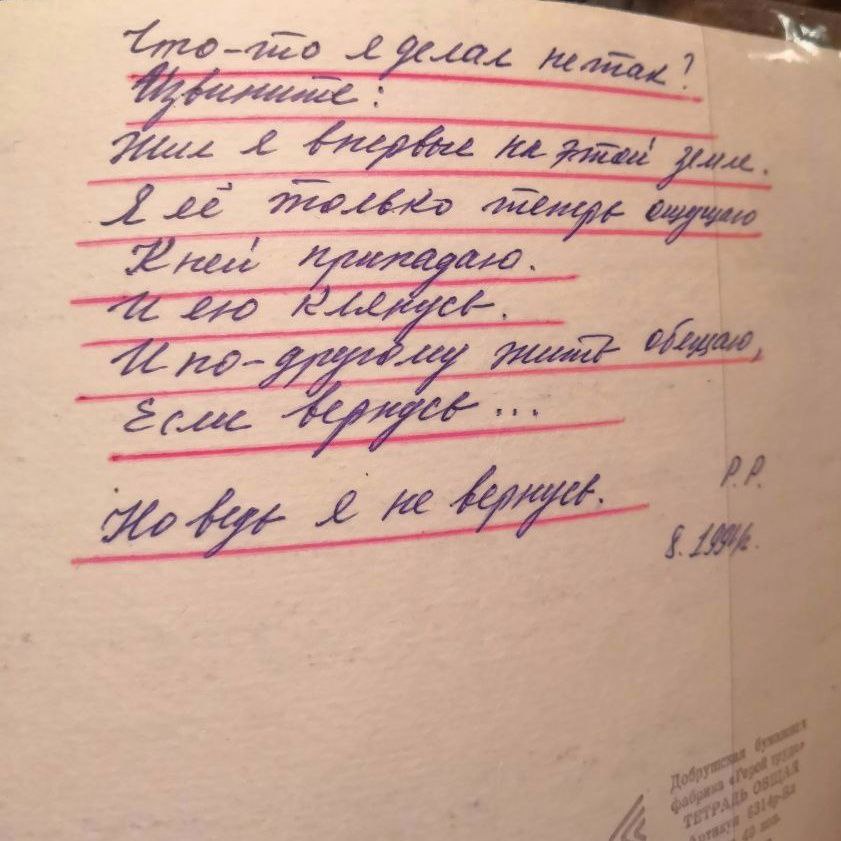 Что-то я делал не так?
Извините:
Жил я впервые на этой земле.
Я её только теперь ощущаю
К ней припадаю.
И ею клянусь.
И по-другому жить обещаю,
Если вернусь...
Но ведь я не вернусь.
Р.Р.
8.1994г.
Добрушская бумажная
фабрика «Герой труда»
ТЕТРАДЬ ОБЩАЯ
Артикул 6314р-Вл